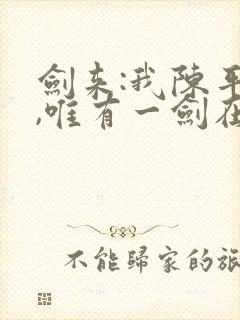 劍來:我陳平
,唯有一劍在
不能歸家的旅